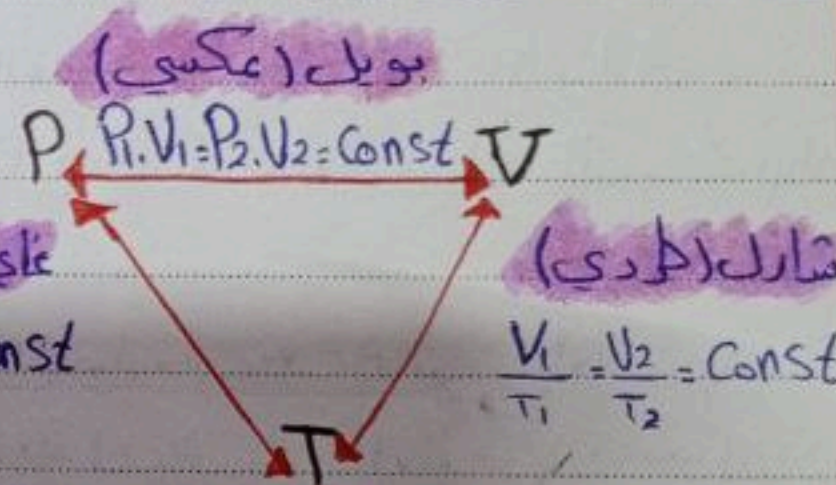 بويل (عكسي)
P P₁.V₁=P₂.V₂=Const V
شارل (طردي)
nst
V₁/T₁ = V₂/T₂ = Const
T